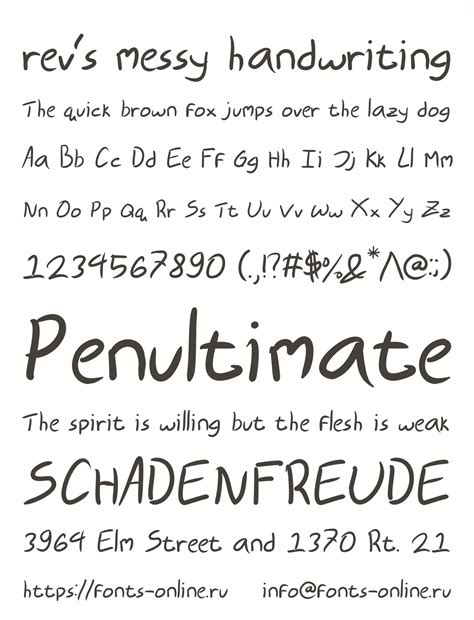 rev's messy handwriting
The quick brown fox jumps over the lazy dog
Aa Bb Cc Dd Ee Ff Gg Hh Ii Jj Kk Ll Mm
Nn Oo Pp Qq Rr Ss Tt Uu Vv Ww Xx Yy Zz
1234567890 (.,!?#$%&*/\@:;)
Penultimate
The spirit is willing but the flesh is weak
SCHADENFREUDE
3964 Elm Street and 1370 Rt. 21
https://fonts-online.ru info@fonts-online.ru